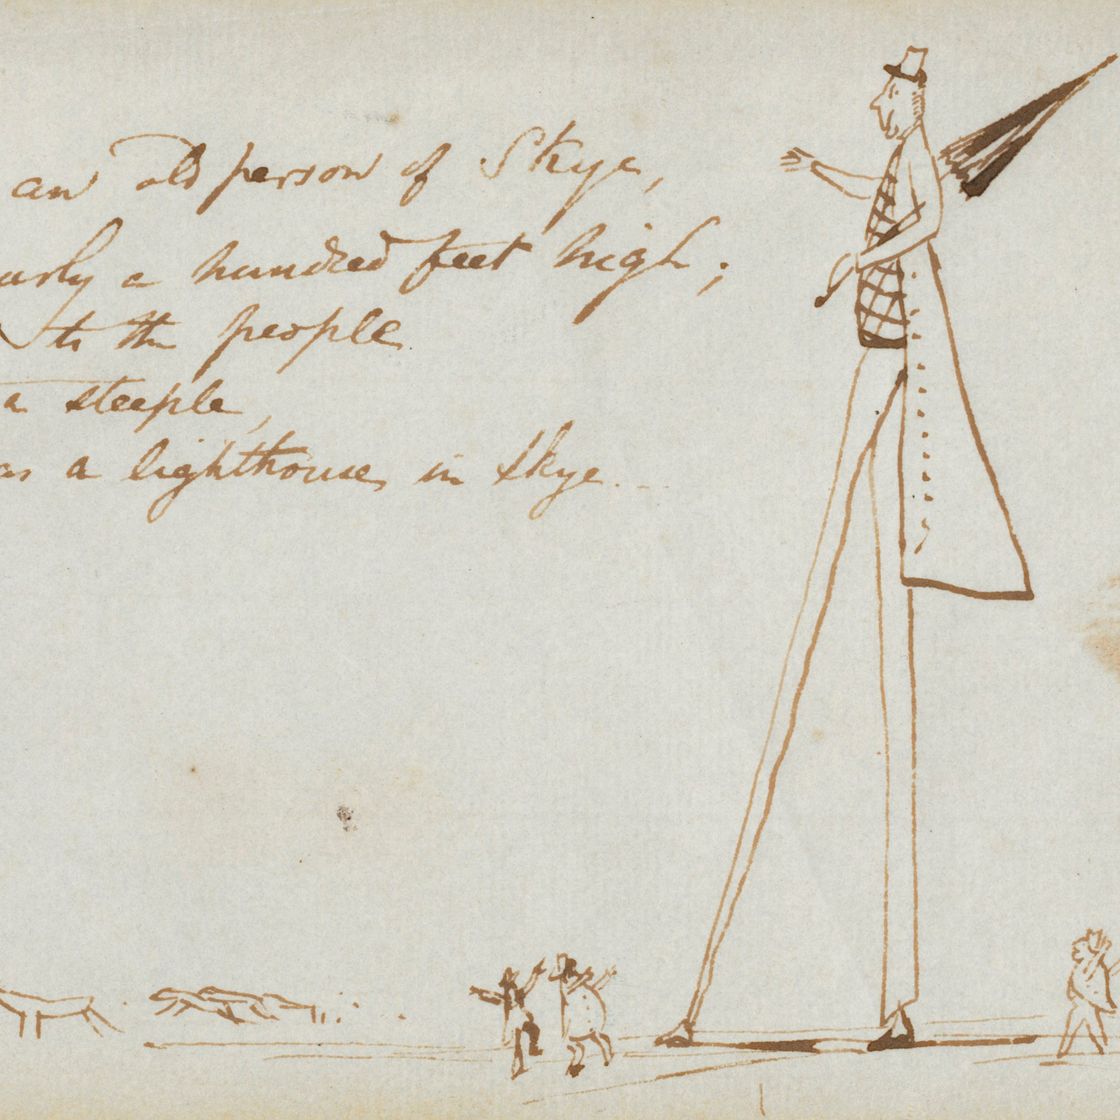 an old person of Skye,
a hundred feet high;
to the people
a steeple,
as a lighthouse in Skye..